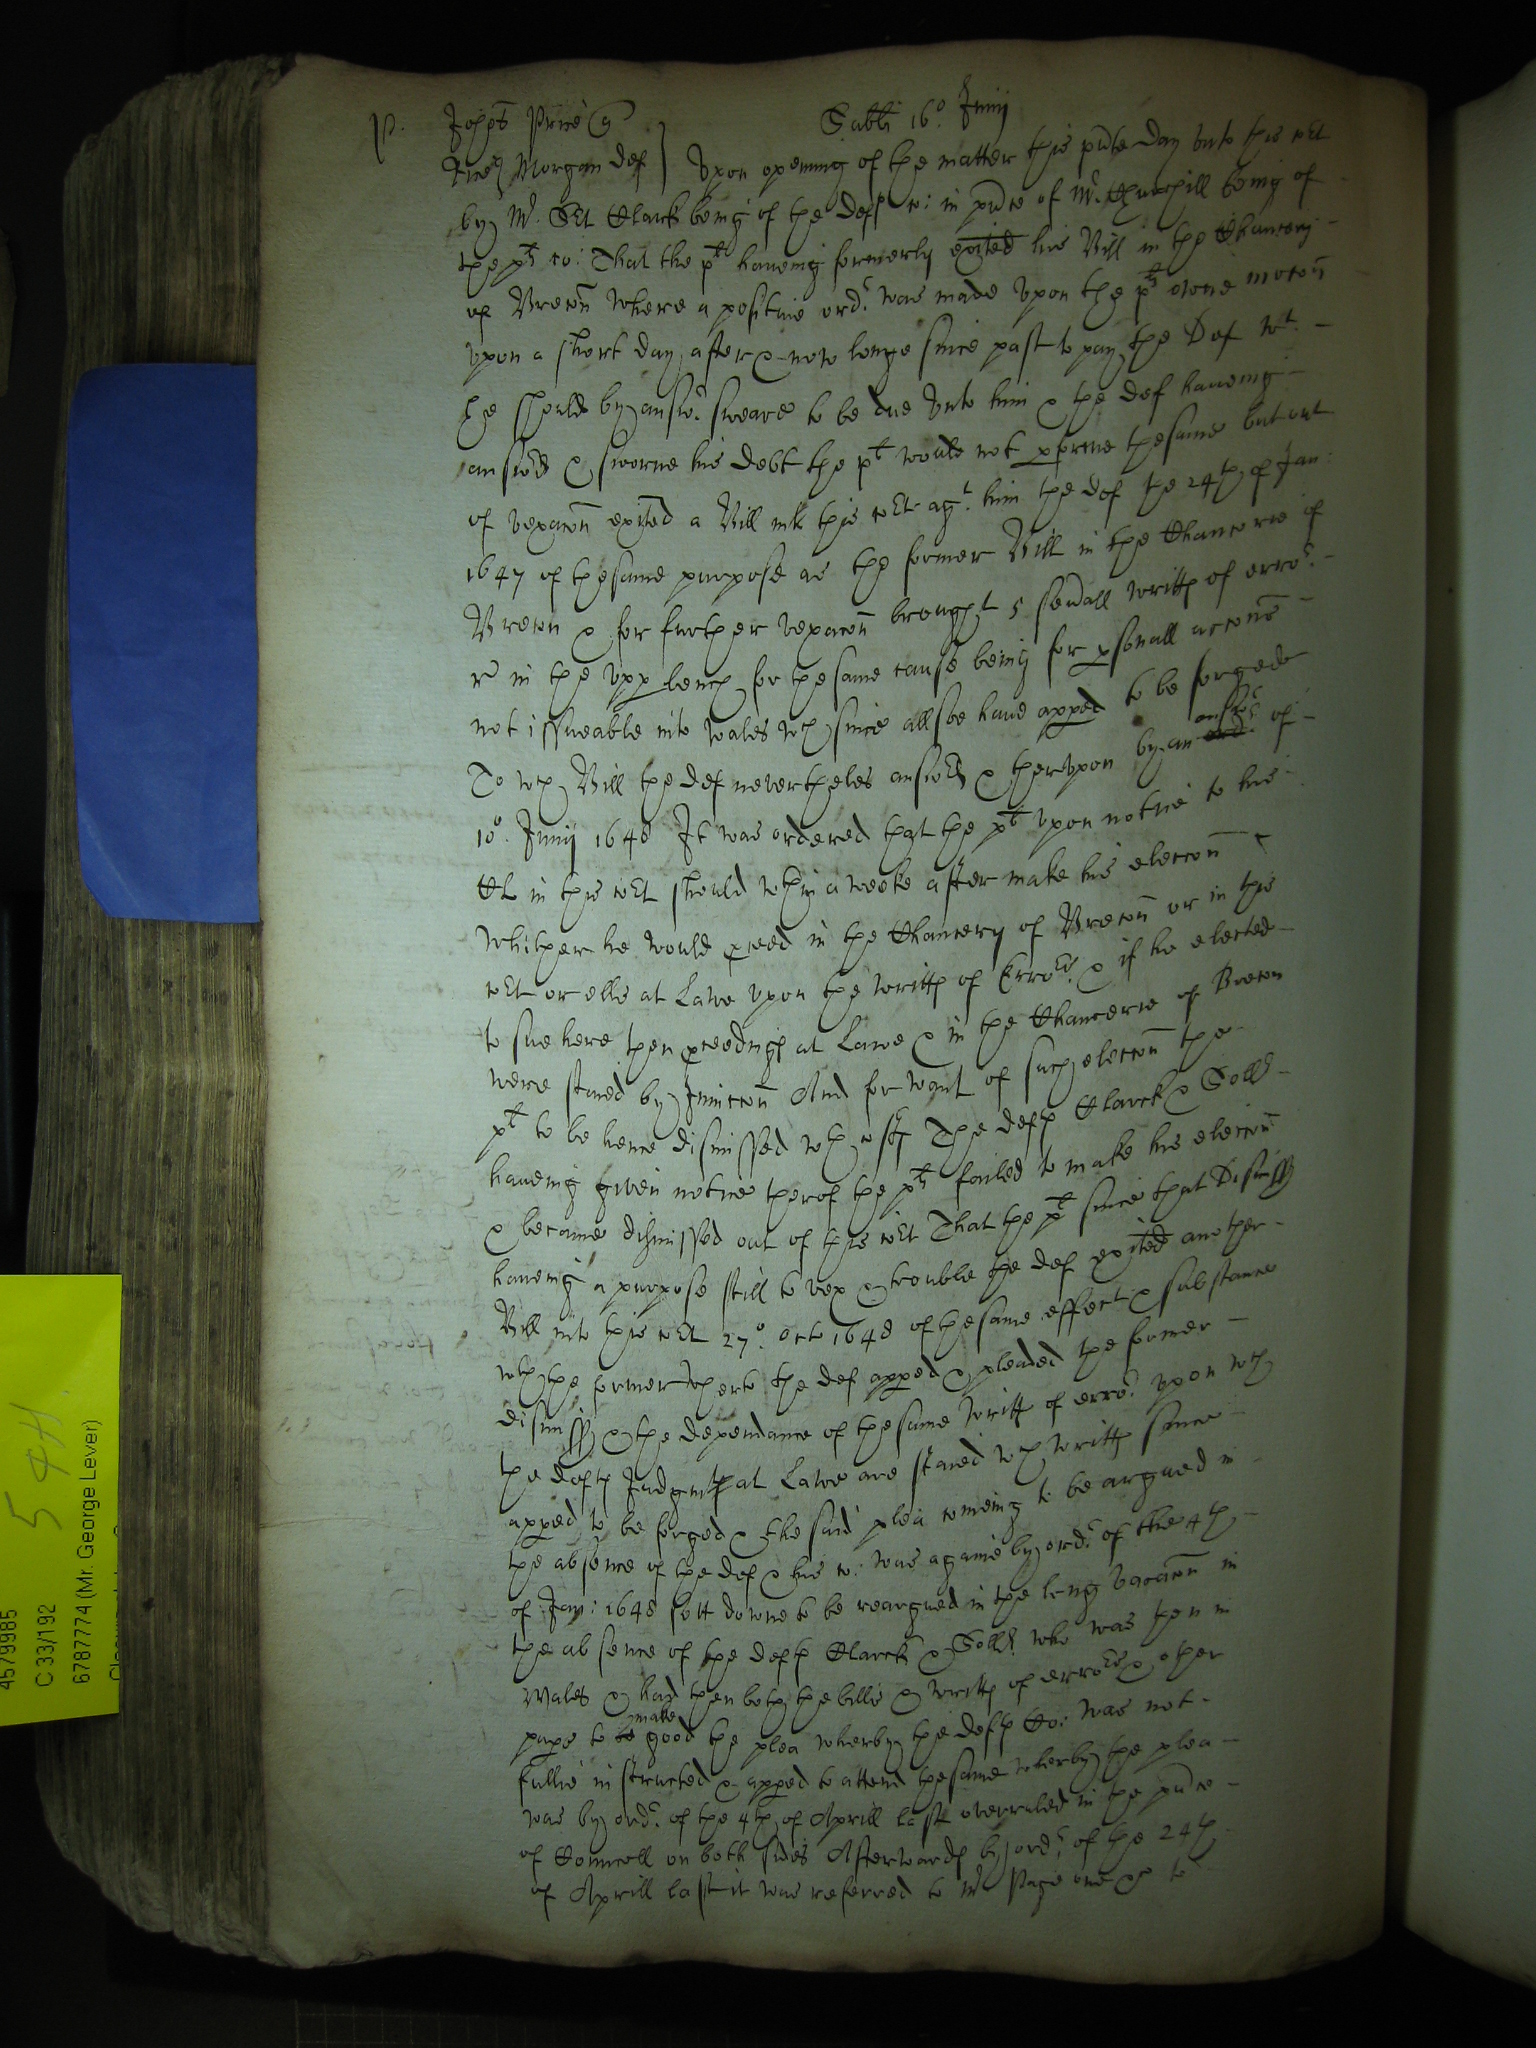 P. Johes Price q
Sabbti 16o Junij
Ricen Morgan def Upon opening of the matter this pnte day unto this Cort
by Mr. Sert Clark being of the defts co: in pnce of Mr. Churchill being of
the plts co: That the plt haveing formerly exited his Bill in the Chancery
of Brecon where a positive ordr was made upon the plts owne mocon
upon a short day after & now longe since past to pay the Def wt
he should by answr sweare to be due unto him & the def haveing
answd & sworne his debt the plt would not pforme the same but out
of vexacon exited a Bill into this Cort agt him the def the 24th of Jan:
1647 of the same purpose as the former Bill in the Chancerie of
Brecon & for further vexacon brought 5 sevall writts of erro
r in the upp bench for the same cause being for psonall accons
not issueable into Wales wch since allsoe have apped to be forged
To wch Bill the def nevertheles answd & therupon by an ordr answr of
10o Junij 1648 It was ordered that the plt upon notice to his
Cl in this Cort should wthin a weeke after make his eleccon
whither he would pceed in the Chancery of Brecon or in this
Cort or ells at Lawe upon the writts of Errors & if he elected
to sue here then pceedings at Lawe & in the Chancerie of Brecon
were staied by Iniuccon And for want of such eleccon the
plt to be hence dismissed wth costs The defts Clarck & Sollr
haveing given notice therof the plt failed to make his eleccon
& became dismissed out of this Cort That the plt since that Dismiss
haveing a purpose still to vex & trouble the def exited another
Bill into this Cort 27o Octo 1648 of the same effect & substance
wth the former wherto the def apped & pleaded the former
dismiss & the dependance of the same writts of error upon wch
the defts Judgmts at Lawe are staied wch writts since
apped to be forged & the said plea comeing to be argued in
the absence of the def & his co: was againe by ordr of the 4th
of Jan: 1648 sett downe to be reargued in the long vacacon in
the absence of the defts Clarck & Sollr who was then in
Wales & had then both the bills & writts of errors & other
paps to be make good the plea wherby the defts Co: was not
fullie instructed & apped to attend the same wherby the plea
was by ordr of the 4th of Aprill last overruled in the pnce
of Councell on both sides Afterwards by ordr of the 24th
of Aprill last it was referred to Mr Page one &c to
5 441
4579985
C 33/192
6787774 (Mr. George Lever)